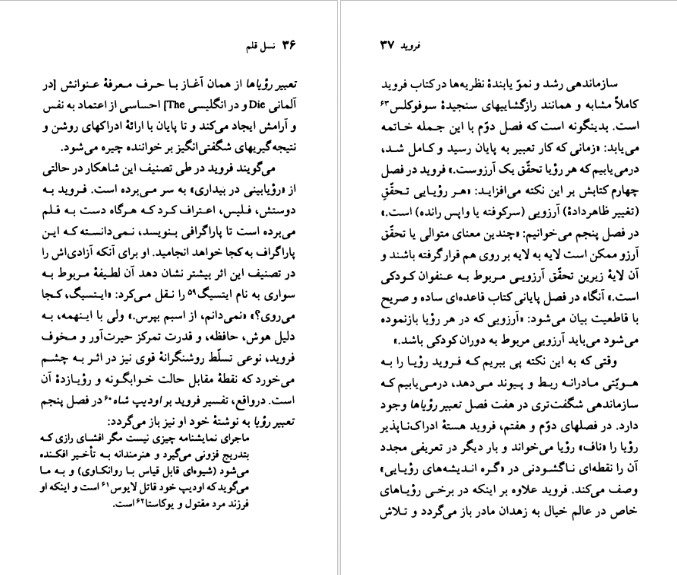 ۳۶ نسل قلم
تعبیر رؤیاها از همان آغاز با حرف معرفهٔ عنوانش [در
آلمانی Die و در انگلیسی The] احساسی از اعتماد به نفس
و آرامش ایجاد می‌کند و تا پایان با ارائهٔ ادراکهای روشن و
نتیجه‌گیریهای شگفتی‌انگیز بر خواننده چیره می‌شود.
می‌گویند فروید در طی تصنیف این شاهکار در حالتی
از «رؤیابینی در بیداری» به سر می‌برده است. فروید به
دوستش، فلیس، اعتراف کرد که هرگاه دست به قلم
می‌برده است تا پاراگرافی بنویسد، نمی‌دانسته که این
پاراگراف به کجا خواهد انجامید. او برای آنکه آزادی‌اش را
در تصنیف این اثر بیشتر نشان دهد آن لطیفهٔ مربوط به
سواری به نام ایتسیگ۵۹ را نقل می‌کرد: «ایتسیگ، کجا
می‌روی؟» «نمی‌دانم، از اسبم بپرس.» ولی با اینهمه، به
دلیل هوش، حافظه، و قدرت تمرکز حیرت‌آور و مخوف
فروید، نوعی تسلّط روشنگرانهٔ قوی نیز در اثر به چشم
می‌خورد که نقطهٔ مقابل حالت خوابگونه و رؤیازدهٔ آن
است. درواقع، تفسیر فروید بر اودیپ شاه۶۰ در فصل پنجم
تعبیر رؤیا به نوشتهٔ خود او نیز باز می‌گردد:
ماجرای نمایشنامه چیزی نیست مگر افشای رازی که
بتدریج فزونی می‌گیرد و هنرمندانه به تأخیر افکنده
می‌شود (شیوه‌ای قابل قیاس با روانکاوی) و به ما
می‌گوید که اودیپ خود قاتل لایوس۶۱ است و اینکه او
فرزند مرد مقتول و یوکاستا۶۲ است.
فروید ۳۷
سازماندهی رشد و نموّ یابندهٔ نظریه‌ها در کتاب فروید
کاملاً مشابه و همانند رازگشاییهای سنجیدهٔ سوفوکلس۶۳
است. بدینگونه است که فصل دوّم با این جمله خاتمه
می‌یابد: «زمانی که کار تعبیر به پایان رسید و کامل شد،
درمی‌یابیم که هر رؤیا تحقّق یک آرزوست.» فروید در فصل
چهارم کتابش بر این نکته می‌افزاید: «هر رؤیایی تحقّقِ
(تغییر ظاهردادهٔ) آرزویی (سرکوفته یا واپس رانده) است.»
در فصل پنجم می‌خوانیم: «چندین معنای متوالی یا تحقّق
آرزو ممکن است لایه به لایه بر روی هم قرارگرفته باشند و
آن لایهٔ زیرین تحقّق آرزویی مربوط به عنفوان کودکی
است.» آنگاه در فصل پایانی کتاب قاعده‌ای ساده و صریح
با قاطعیت بیان می‌شود: «آرزویی که در هر رؤیا بازنموده
می‌شود می‌باید آرزویی مربوط به دوران کودکی باشد.»
وقتی که به این نکته پی ببریم که فروید رؤیا را به
هویّتی مادرانه ربط و پیوند می‌دهد، درمی‌یابیم که
سازماندهی شگفت‌تری در هفت فصل تعبیر رؤیاها وجود
دارد. در فصلهای دوّم و هفتم، فروید هستهٔ ادراک‌ناپذیر
رؤیا را «ناف» رؤیا می‌خواند و بار دیگر در تعریفی مجدد
آن را نقطه‌ای ناگشودنی در «گره اندیشه‌های رؤیایی»
وصف می‌کند. فروید علاوه بر اینکه در برخی رؤیاهای
خاص در عالم خیال به زهدان مادر باز می‌گردد و تلاش